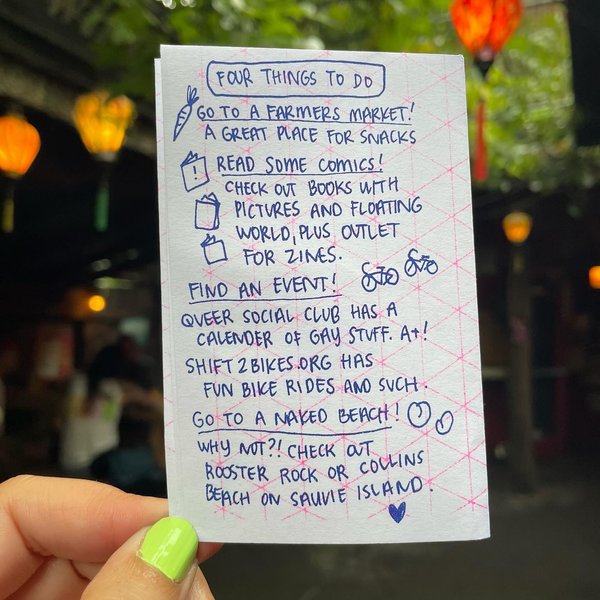 FOUR THINGS TO DO
GO TO A FARMERS MARKET!
A GREAT PLACE FOR SNACKS
!
READ SOME COMICS!
CHECK OUT BOOKS WITH
PICTURES AND FLOATING
WORLD, PLUS OUTLET
FOR ZINES.
FIND AN EVENT!
QUEER SOCIAL CLUB HAS A
CALENDER OF GAY STUFF. A+!
SHIFT2BIKES.ORG HAS
FUN BIKE RIDES AND SUCH.
GO TO A NAKED BEACH!
WHY NOT?! CHECK OUT
ROOSTER ROCK OR COLLINS
BEACH ON SAUVIE ISLAND.